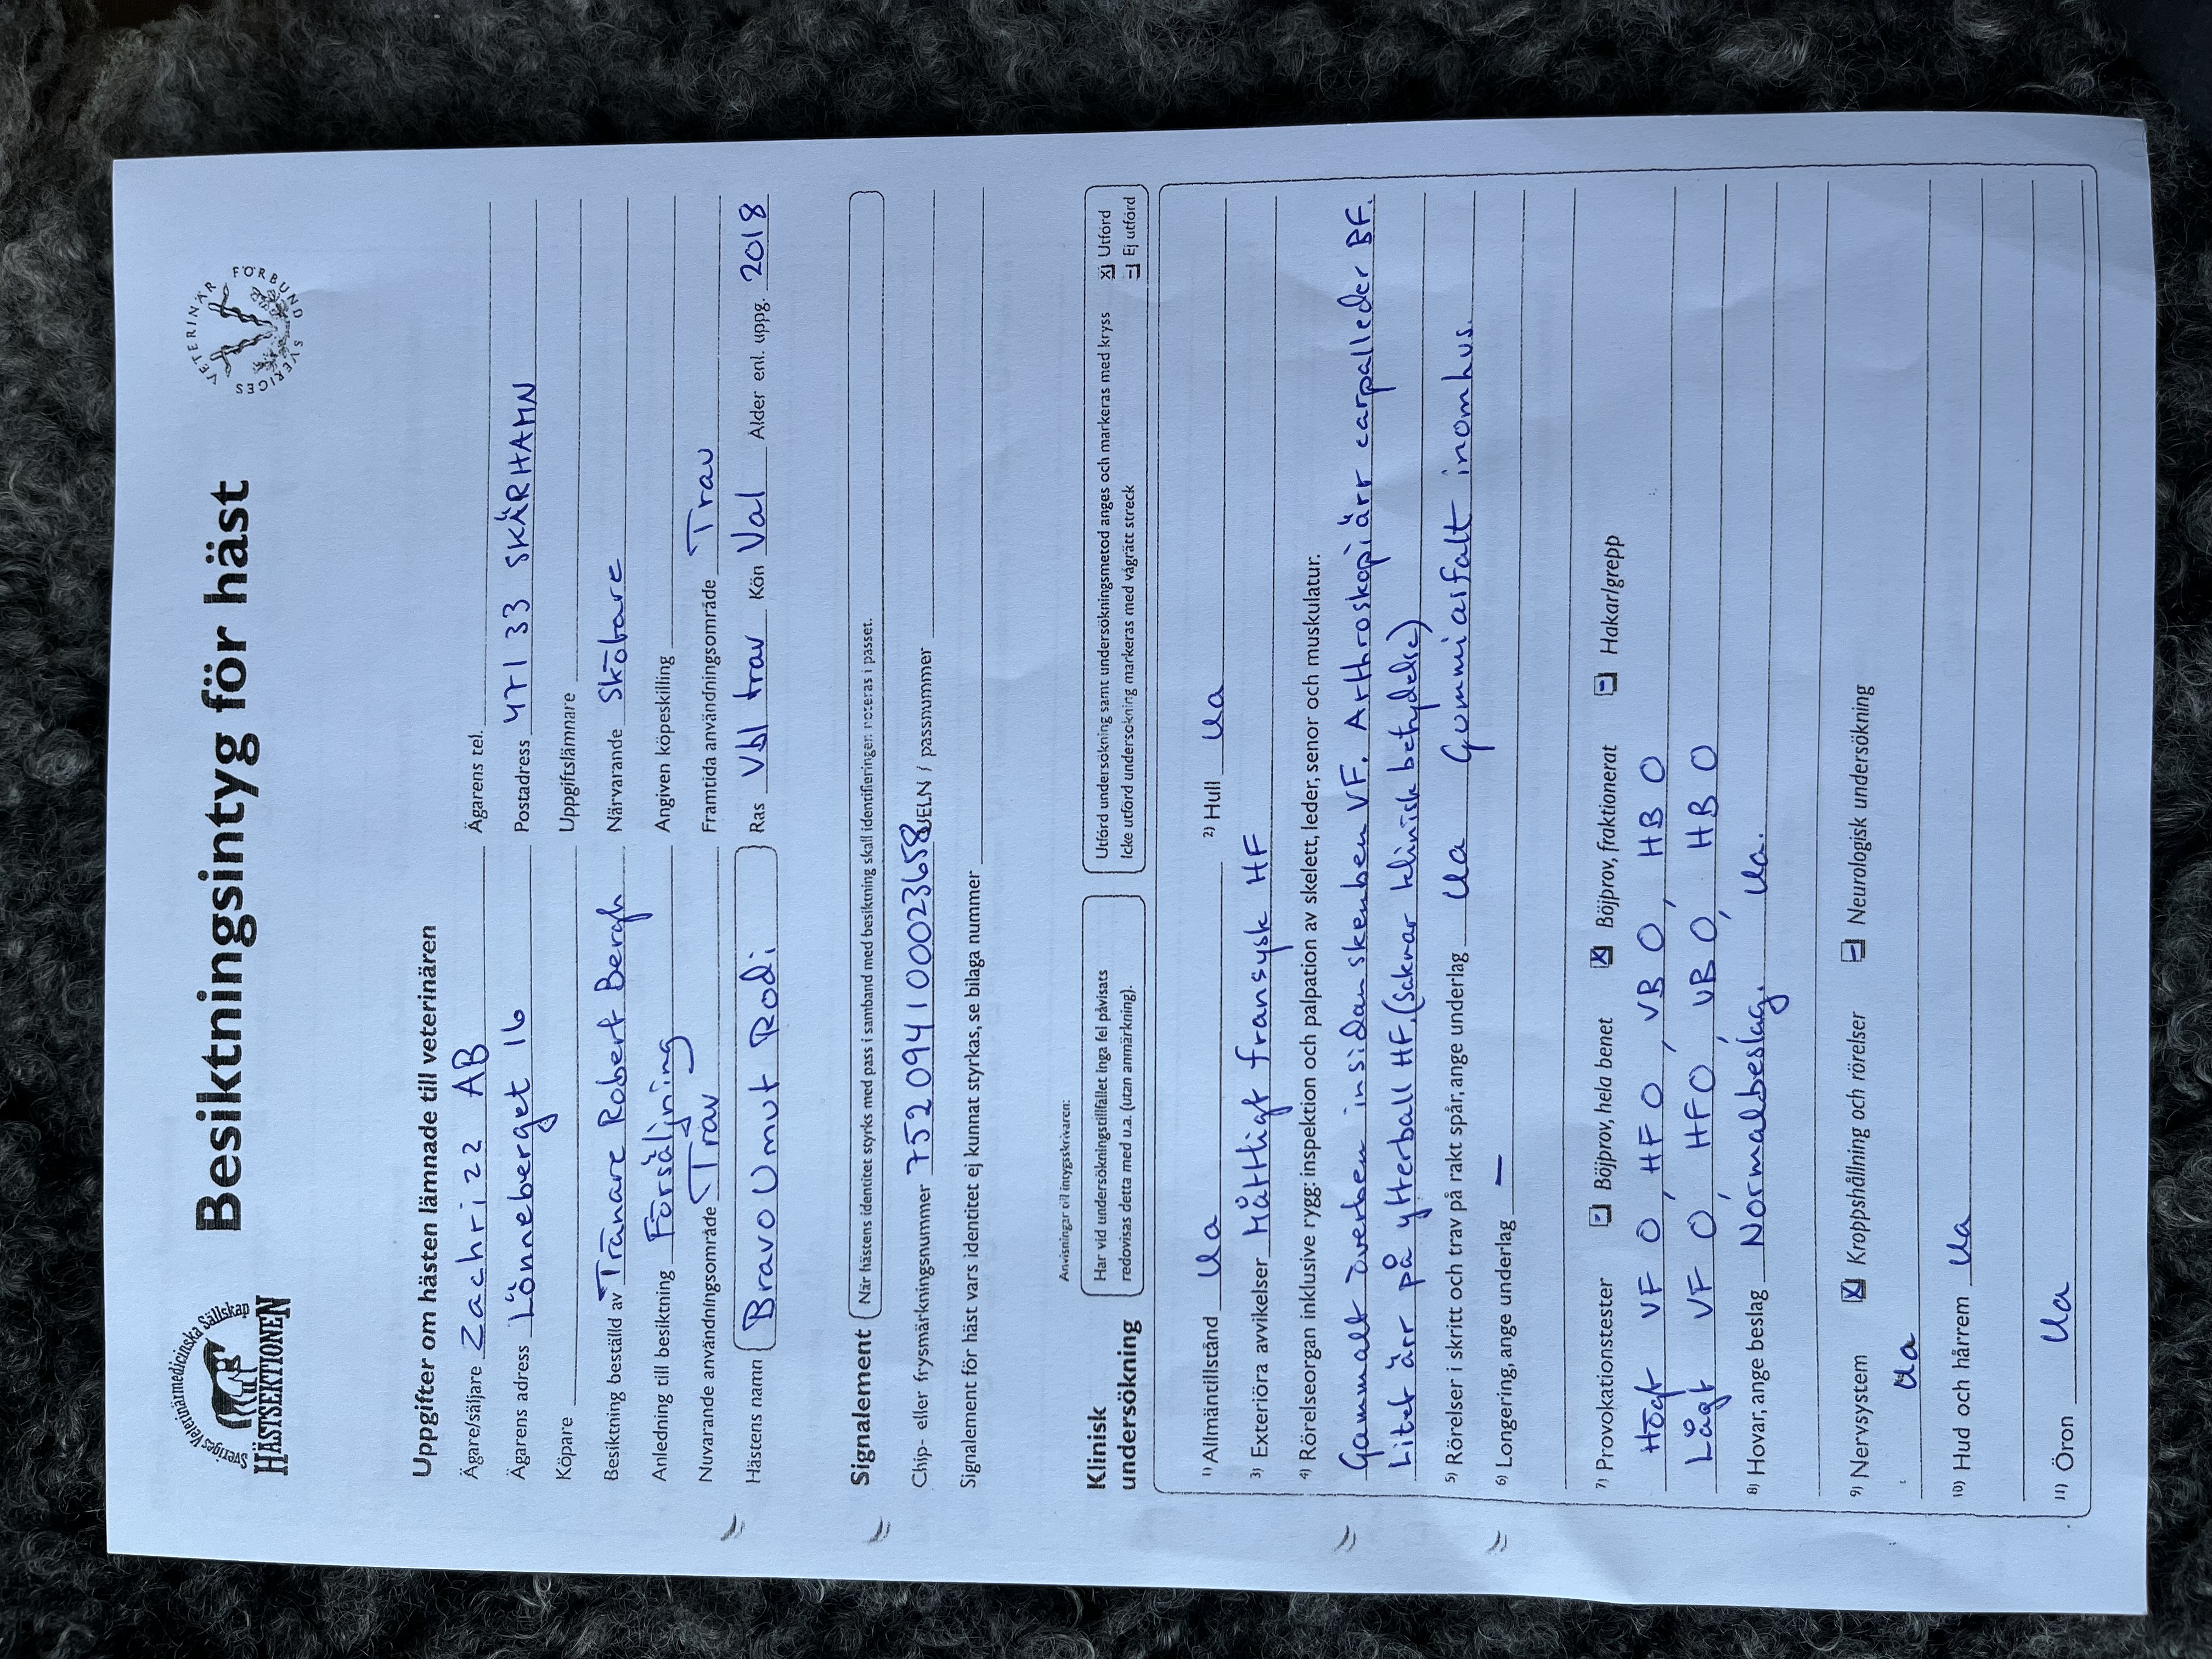 Sveriges Veterinärmedicinska Sällskap
HÄSTSEKTIONEN
Besiktningsintyg för häst
SVERIGES VETERINÄR FÖRBUND
Uppgifter om hästen lämnade till veterinären
Ägare/säljare Zachrizz AB Ägarens tel.
Ägarens adress Lönneberget 16 Postadress 471 33 SKÄRHAMN
Köpare Uppgiftslämnare
Besiktning beställd av Tränare Robert Bergh Närvarande Skötare
Anledning till besiktning Försäljning Angiven köpeskilling
Nuvarande användningsområde Trav Framtida användningsområde Trav
Hästens namn Bravo Umut Rodi Ras Vbl trav Kön Val Ålder enl. uppg. 2018
Signalement När hästens identitet styrks med pass i samband med besiktning skall identifieringen noteras i passet.
Chip- eller frysmärkningsnummer 752094100023658 UELN / passnummer
Signalement för häst vars identitet ej kunnat styrkas, se bilaga nummer
Anvisningar till intygsskrivaren:
Klinisk undersökning
Har vid undersökningstillfället inga fel påvisats
redovisas detta med u.a. (utan anmärkning).
Utförd undersökning samt undersökningsmetod anges och markeras med kryss
Icke utförd undersökning markeras med vågrätt streck
x Utförd
– Ej utförd
1) Allmäntillstånd Ua 2) Hull Ua
3) Exteriöra avvikelser Måttligt fransysk HF
4) Rörelseorgan inklusive rygg: inspektion och palpation av skelett, leder, senor och muskulatur.
Gammalt överben insidan skenben VF. Arthroskopiärr carpalleder BF.
Litet ärr på ytterball HF. (Saknar klinisk betydelse)
5) Rörelser i skritt och trav på rakt spår, ange underlag Ua Gummiasfalt inomhus.
6) Longering, ange underlag –
7) Provokationstester – Böjprov, hela benet x Böjprov, fraktionerat – Hakar/grepp
Högt VF 0, HF 0, VB 0, HB 0
Lågt VF 0, HF 0, VB 0, HB 0
8) Hovar, ange beslag Normalbeslag. Ua.
9) Nervsystem x Kroppshållning och rörelser – Neurologisk undersökning
Ua
10) Hud och hårrem Ua
11) Öron Ua